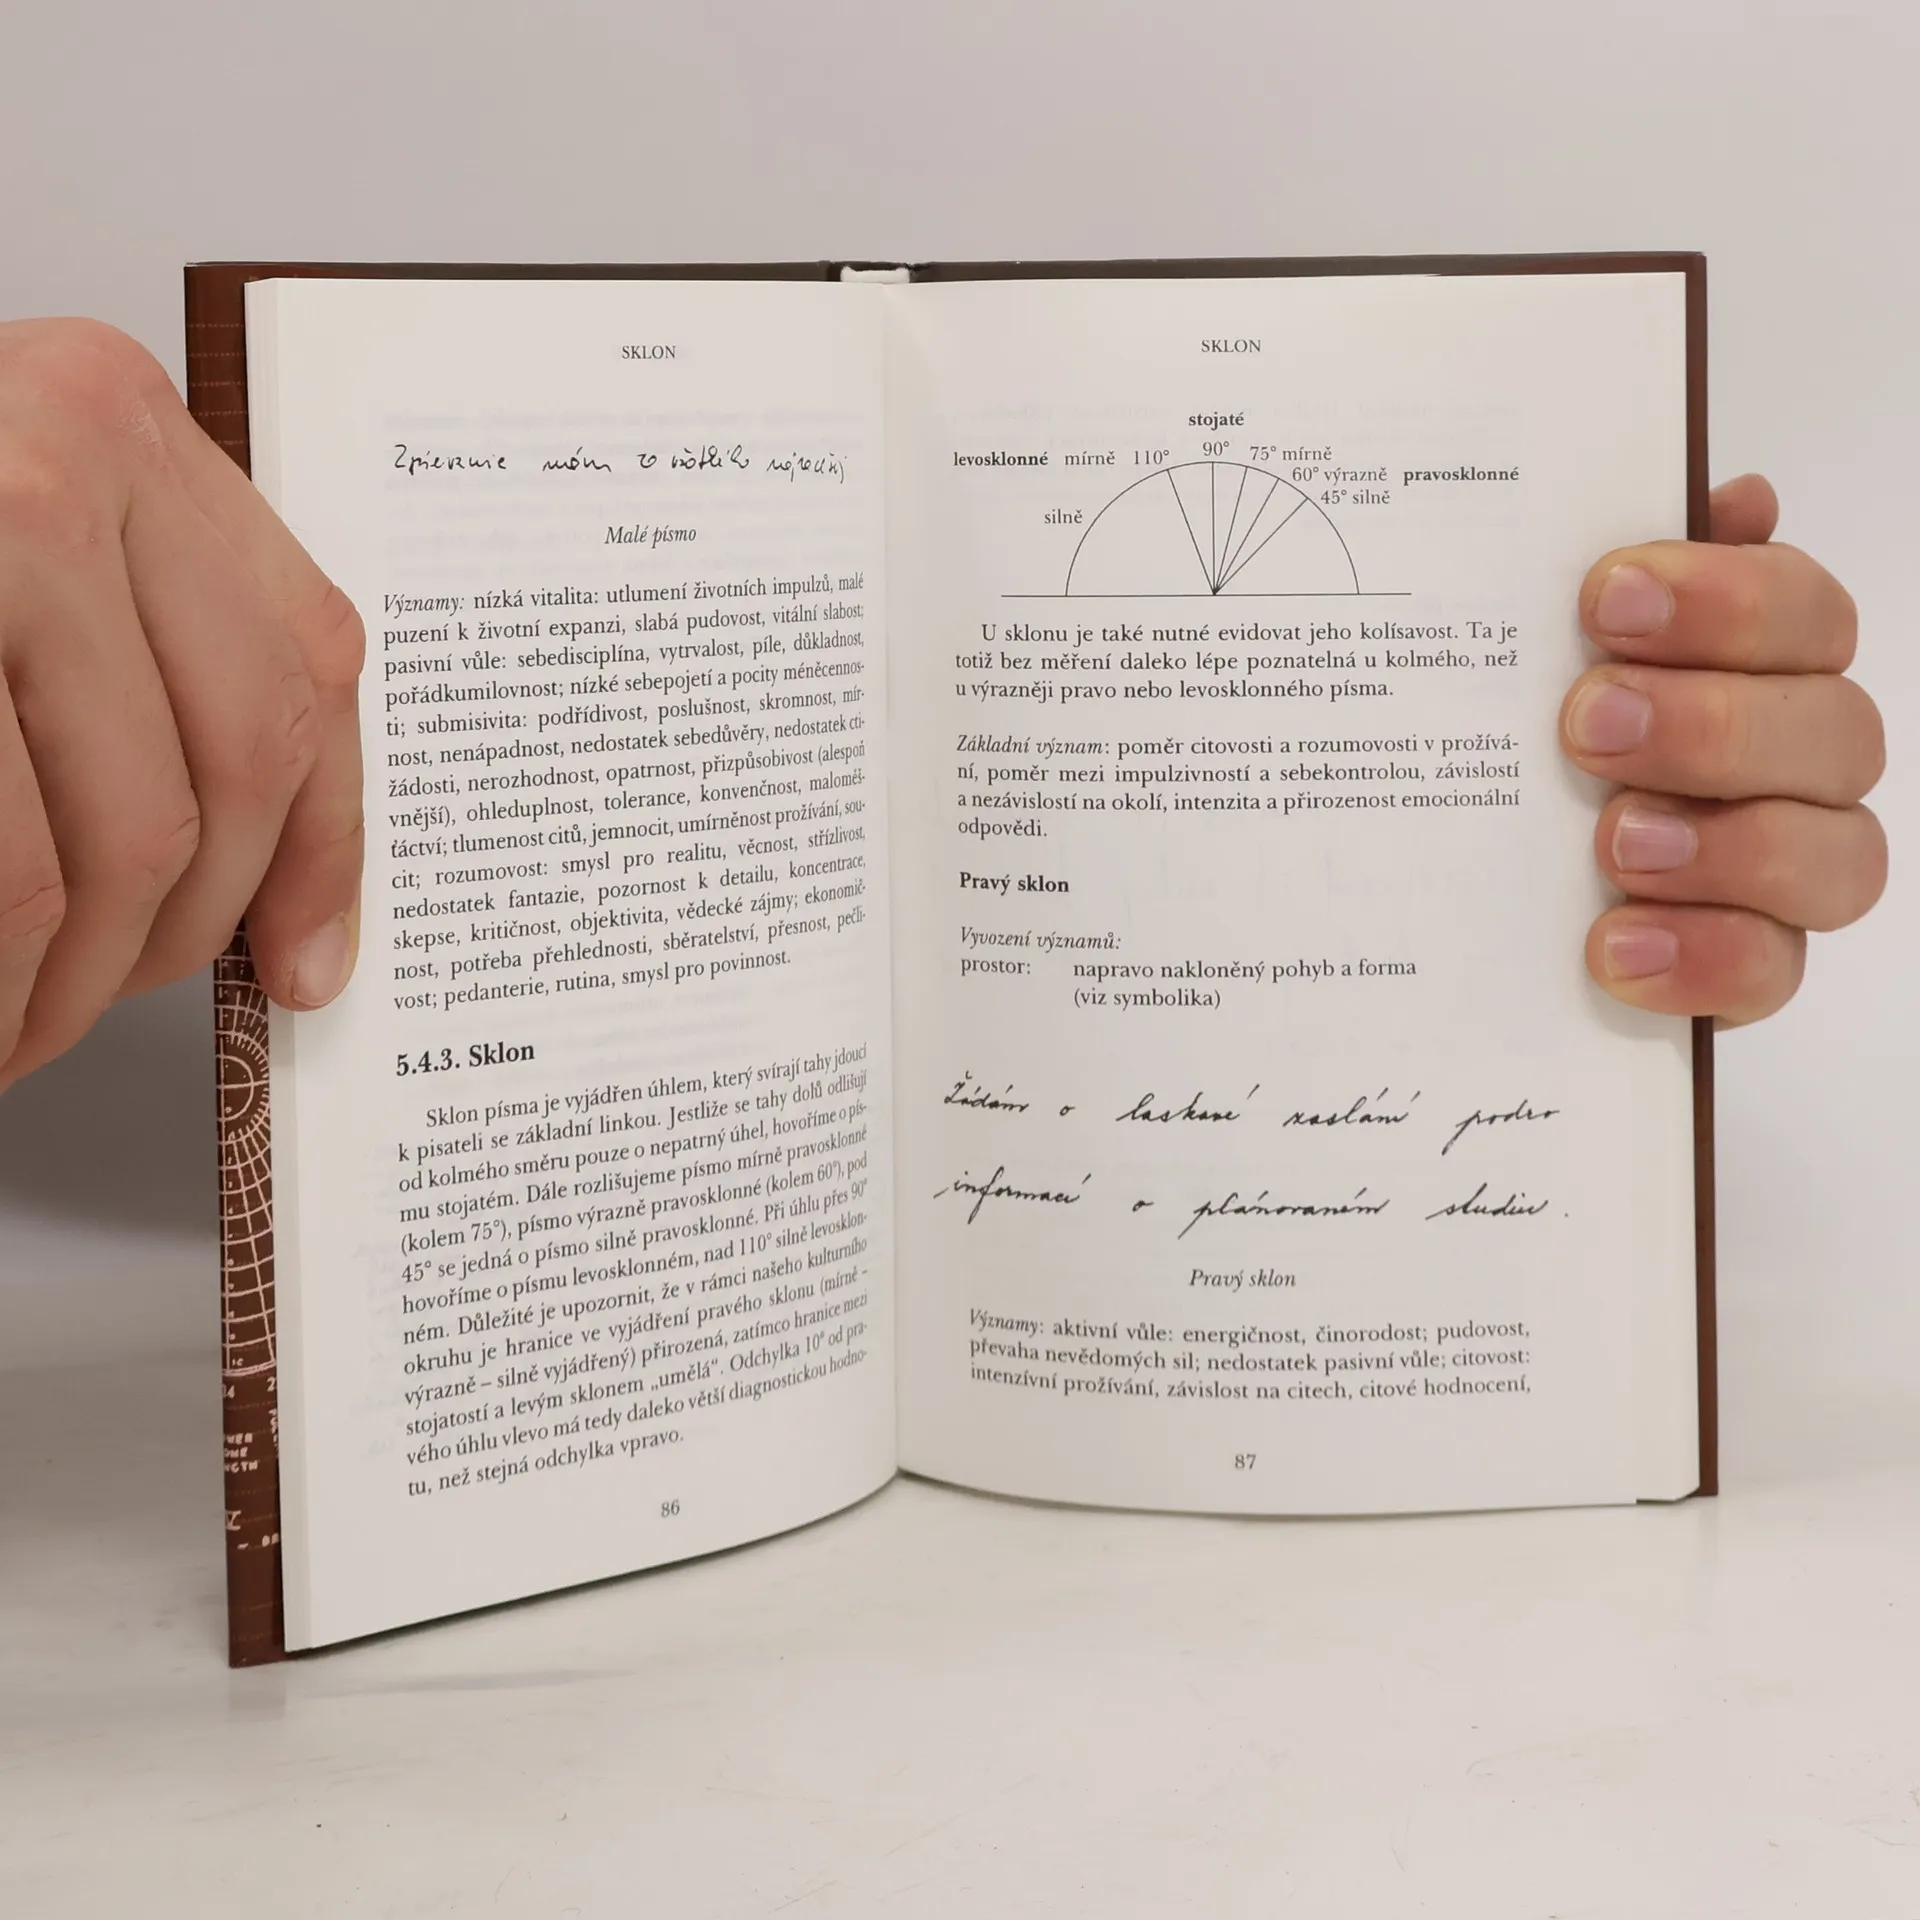 SKLON
Zpievanie mám zo všetkého najradšej
Malé písmo
Významy: nízká vitalita: utlumení životních impulzů, malé
puzení k životní expanzi, slabá pudovost, vitální slabost;
pasivní vůle: sebedisciplína, vytrvalost, píle, důkladnost,
pořádkumilovnost; nízké sebepojetí a pocity méněcennos-
ti; submisivita: podřídivost, poslušnost, skromnost, mír-
nost, nenápadnost, nedostatek sebedůvěry, nedostatek cti-
žádosti, nerozhodnost, opatrnost, přizpůsobivost (alespoň
vnější), ohleduplnost, tolerance, konvenčnost, maloměš-
ťáctví; tlumenost citů, jemnocit, umírněnost prožívání, sou-
cit; rozumovost: smysl pro realitu, věcnost, střízlivost,
nedostatek fantazie, pozornost k detailu, koncentrace,
skepse, kritičnost, objektivita, vědecké zájmy; ekonomič-
nost, potřeba přehlednosti, sběratelství, přesnost, pečli-
vost; pedanterie, rutina, smysl pro povinnost.
5.4.3. Sklon
Sklon písma je vyjádřen úhlem, který svírají tahy jdoucí
k pisateli se základní linkou. Jestliže se tahy dolů odlišují
od kolmého směru pouze o nepatrný úhel, hovoříme o pís-
mu stojatém. Dále rozlišujeme písmo mírně pravosklonné
(kolem 75°), písmo výrazně pravosklonné (kolem 60°), pod
45° se jedná o písmo silně pravosklonné. Při úhlu přes 90°
hovoříme o písmu levosklonném, nad 110° silně levosklon-
ném. Důležité je upozornit, že v rámci našeho kulturního
okruhu je hranice ve vyjádření pravého sklonu (mírně –
výrazně – silně vyjádřený) přirozená, zatímco hranice mezi
stojatostí a levým sklonem „umělá“. Odchylka 10° od pra-
vého úhlu vlevo má tedy daleko větší diagnostickou hodno-
tu, než stejná odchylka vpravo.
86
SKLON
stojaté
levosklonné mírně 110° 90° 75° mírně
60° výrazně pravosklonné
45° silně
silně
U sklonu je také nutné evidovat jeho kolísavost. Ta je
totiž bez měření daleko lépe poznatelná u kolmého, než
u výrazněji pravo nebo levosklonného písma.
Základní význam: poměr citovosti a rozumovosti v prožívá-
ní, poměr mezi impulzivností a sebekontrolou, závislostí
a nezávislostí na okolí, intenzita a přirozenost emocionální
odpovědi.
Pravý sklon
Vyvození významů:
prostor: napravo nakloněný pohyb a forma
(viz symbolika)
Žádám o laskavé zaslání podro
informací o plánovaném studiu.
Pravý sklon
Významy: aktivní vůle: energičnost, činorodost; pudovost,
převaha nevědomých sil; nedostatek pasivní vůle; citovost:
intenzívní prožívání, závislost na citech, citové hodnocení,
87